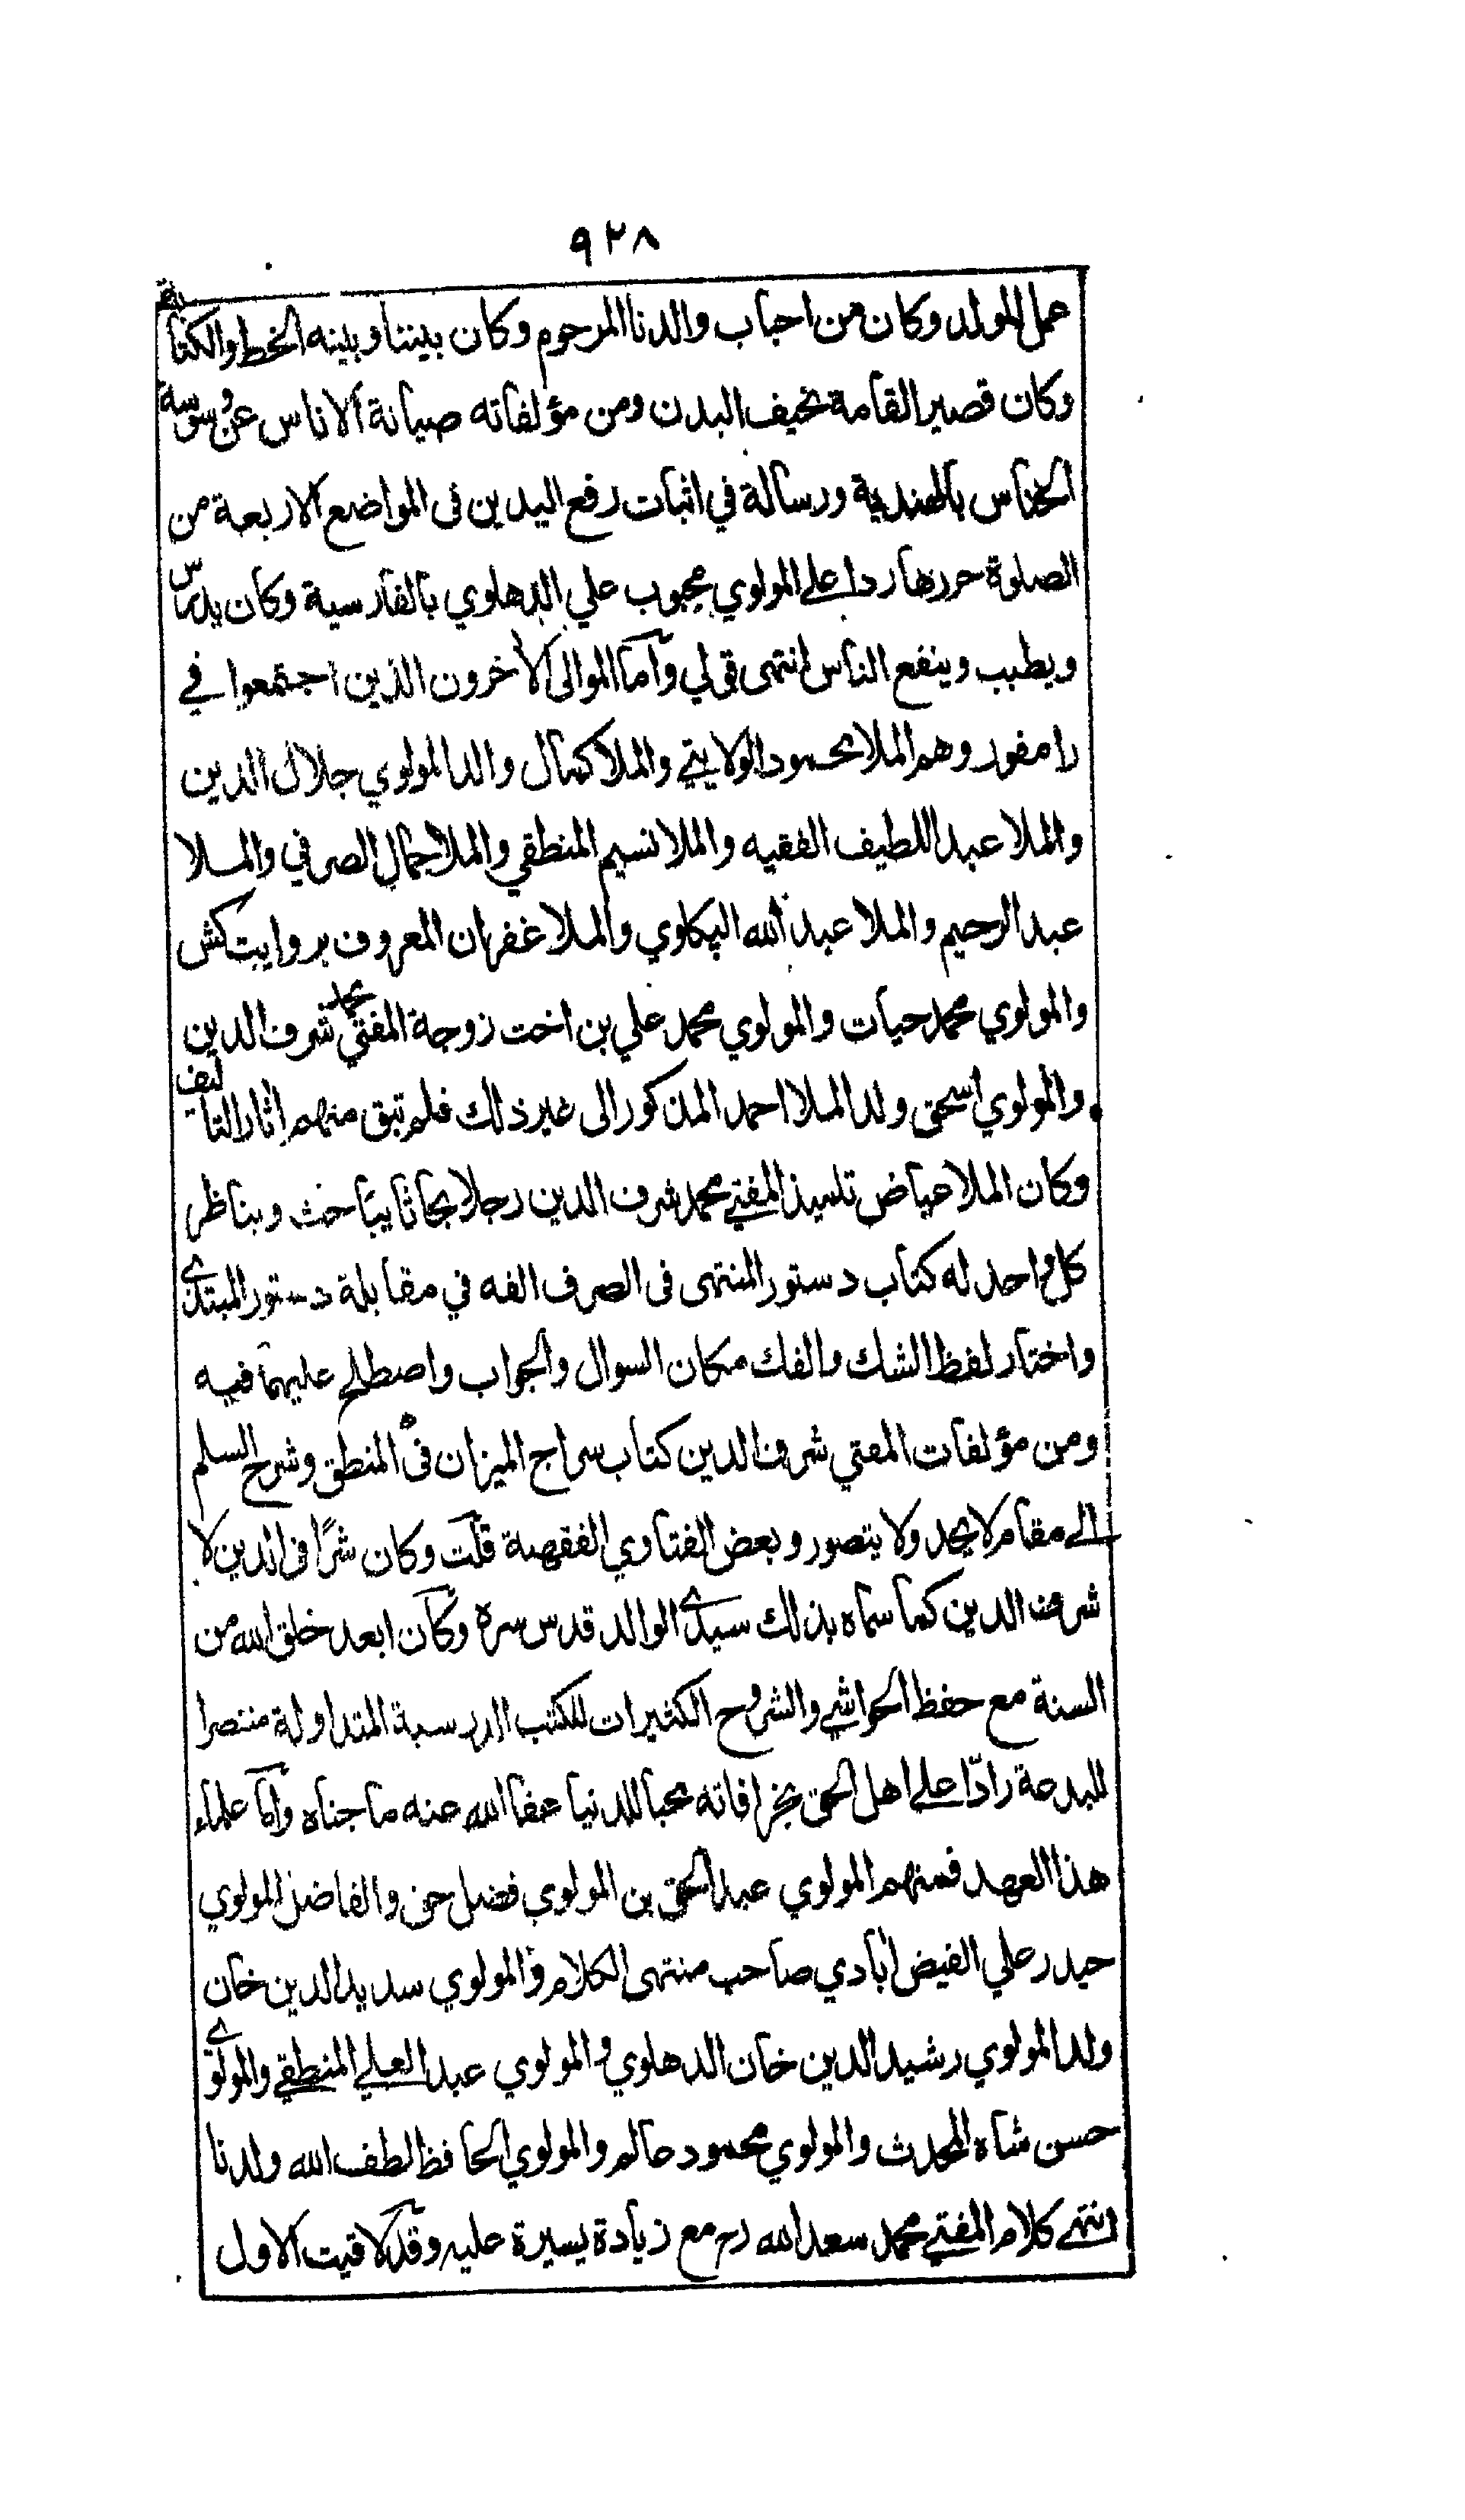 ٩٢٨
عمل المولد وكان من احباب والدنا المرحوم وكان بيننا وبينه الخط والكتابة
وكان قصير القامة نحيف البدن ومن مؤلفاته صيانة الاناس عن وسوسة
الخناس بالهندية ورسالة في اثبات رفع اليدين فى المواضع الاربعة من
الصلوة حررها ردا على المولوي محبوب علي الدهلوي بالفارسية وكان يدرس
ويطبب وينفع الناس انتهى قولي وآما الموالى الآخرون الذين اجتمعوا في
رامفور وهم الملا محمود الولايتي والملا كمال والد المولوي جلال الدين
والملا عبد اللطيف الفقيه والملا نسيم المنطقي والملا جمال الصرفي والملا
عبد الرحيم والملا عبد الله البكاوي والملا غفران المعروف بروايت كش
والمولوي محمد حيات والمولوي محمد علي بن اخت زوجة المفتي محمد شرف الدين
والمولوي اسحق ولد الملا احمد المذكور الى غير ذلك فلم تبق منهم اثار التاليف
وكان الملا عياض تلميذ المفتي محمد شرف الدين رجلا بحاثا يباحث ويناظر
كل واحد له كتاب دستور المنتهى فى الصرف الفه في مقابلة دستور المبتدى
واختار لفظ الشك والفك مكان السوال والجواب واصطلح عليهما فيه
ومن مؤلفات المفتي شرف الدين كتاب سراج الميزان فى المنطق وشرح السلم
الى مقام لا يحد ولا يتصور وبعض الفتاوي الفقهية قلت وكان شرًا فى الدين لا
شرف الدين كما سماه بذلك سيدى الوالد قدس سره وكآن ابعد خلق الله من
السنة مع حفظ الحواشي والشروح الكثيرات للكتب الدرسية المتداولة منتصرا
للبدعة رادّا على اهل الحق بخرافاته محبا للدنيا عفا الله عنه ما جناه وآما علماء
هذا العهد فمنهم المولوي عبد الحق بن المولوي فضل حق والفاضل المولوي
حيدر علي الفيض ابادي صاحب منتهى الكلام والمولوي سديد الدين خان
ولد المولوي رشيد الدين خان الدهلوي والمولوي عبد العلي المنطقي والمولوى
حسن شاه المحدث والمولوي محمود عالم والمولوي الحافظ لطف الله ولدنا
انتهى كلام المفتي محمد سعد الله رح مع زيادة يسيرة عليه وقد لاقيت الاول